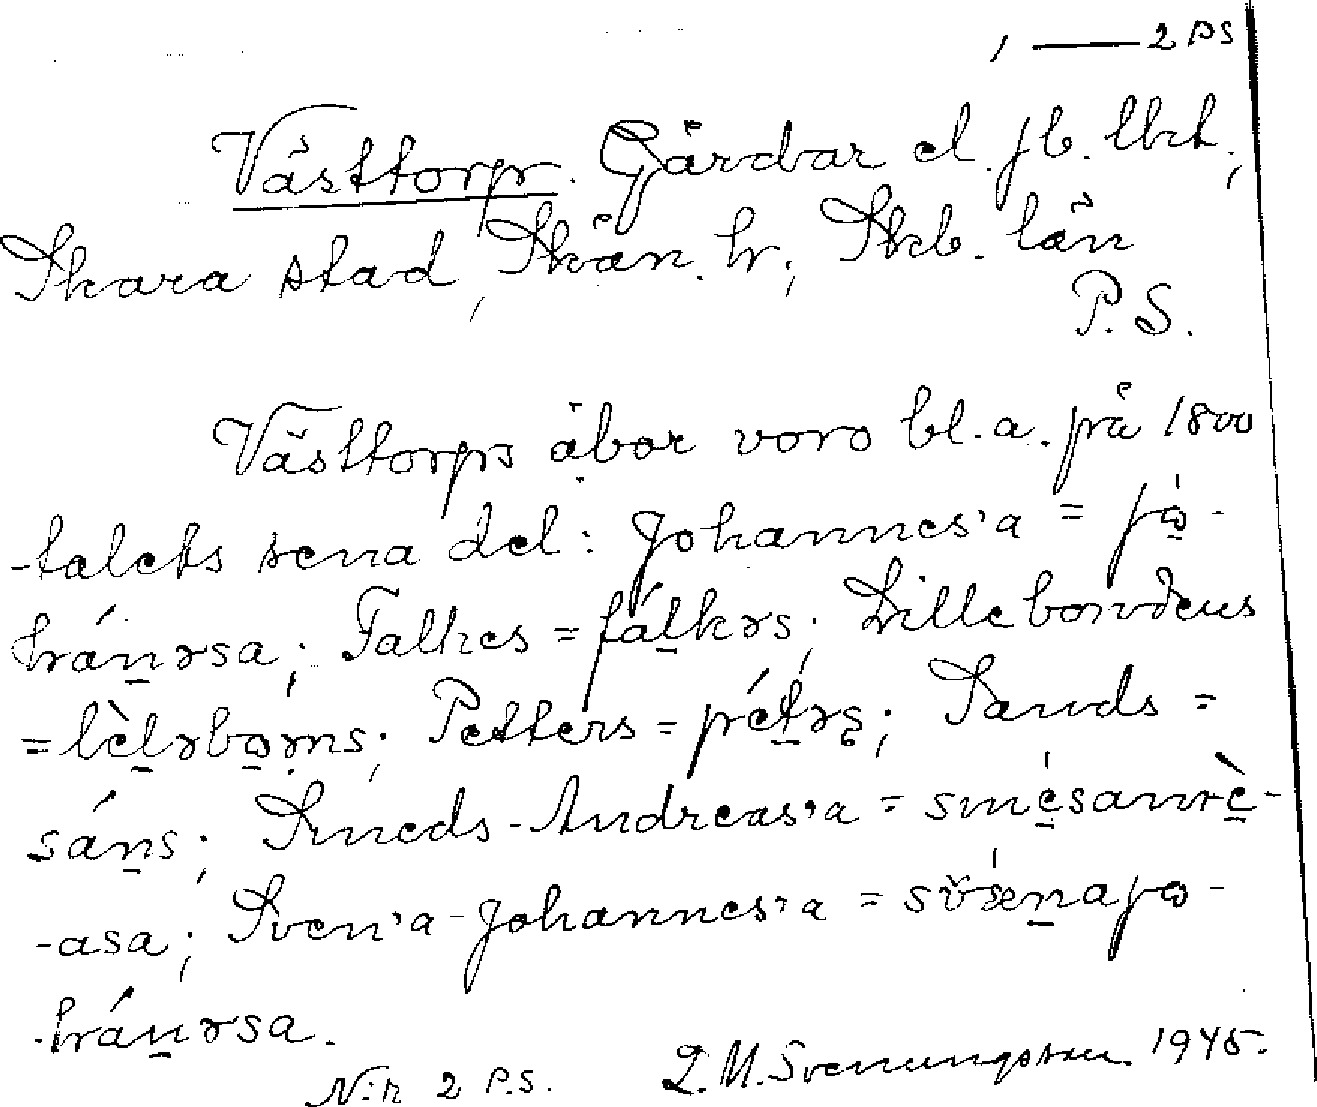 1 — 2 PS
Västtorp. Gårdar el. jb. lhrt.;
Skara stad, Skån. hr, Skb. län
P.S.
Västtorps åbor voro bl.a. på 1800
-talets sena del: Johannes'a = jó̱-
há̱nəsa; Falkes = fá̱lkəs; Lillebondens
= lè̱ləbo̱ṃs; Petters = pé̱təş; Sands =
sá̱ns; Smeds-Andreas'a = smé̱sanrè̱-
-asa; Sven'a-Johannes'a = svǽṉajo-
-há̱nəsa.
N:r 2 P.S. L.M. Svenungsson. 1945.